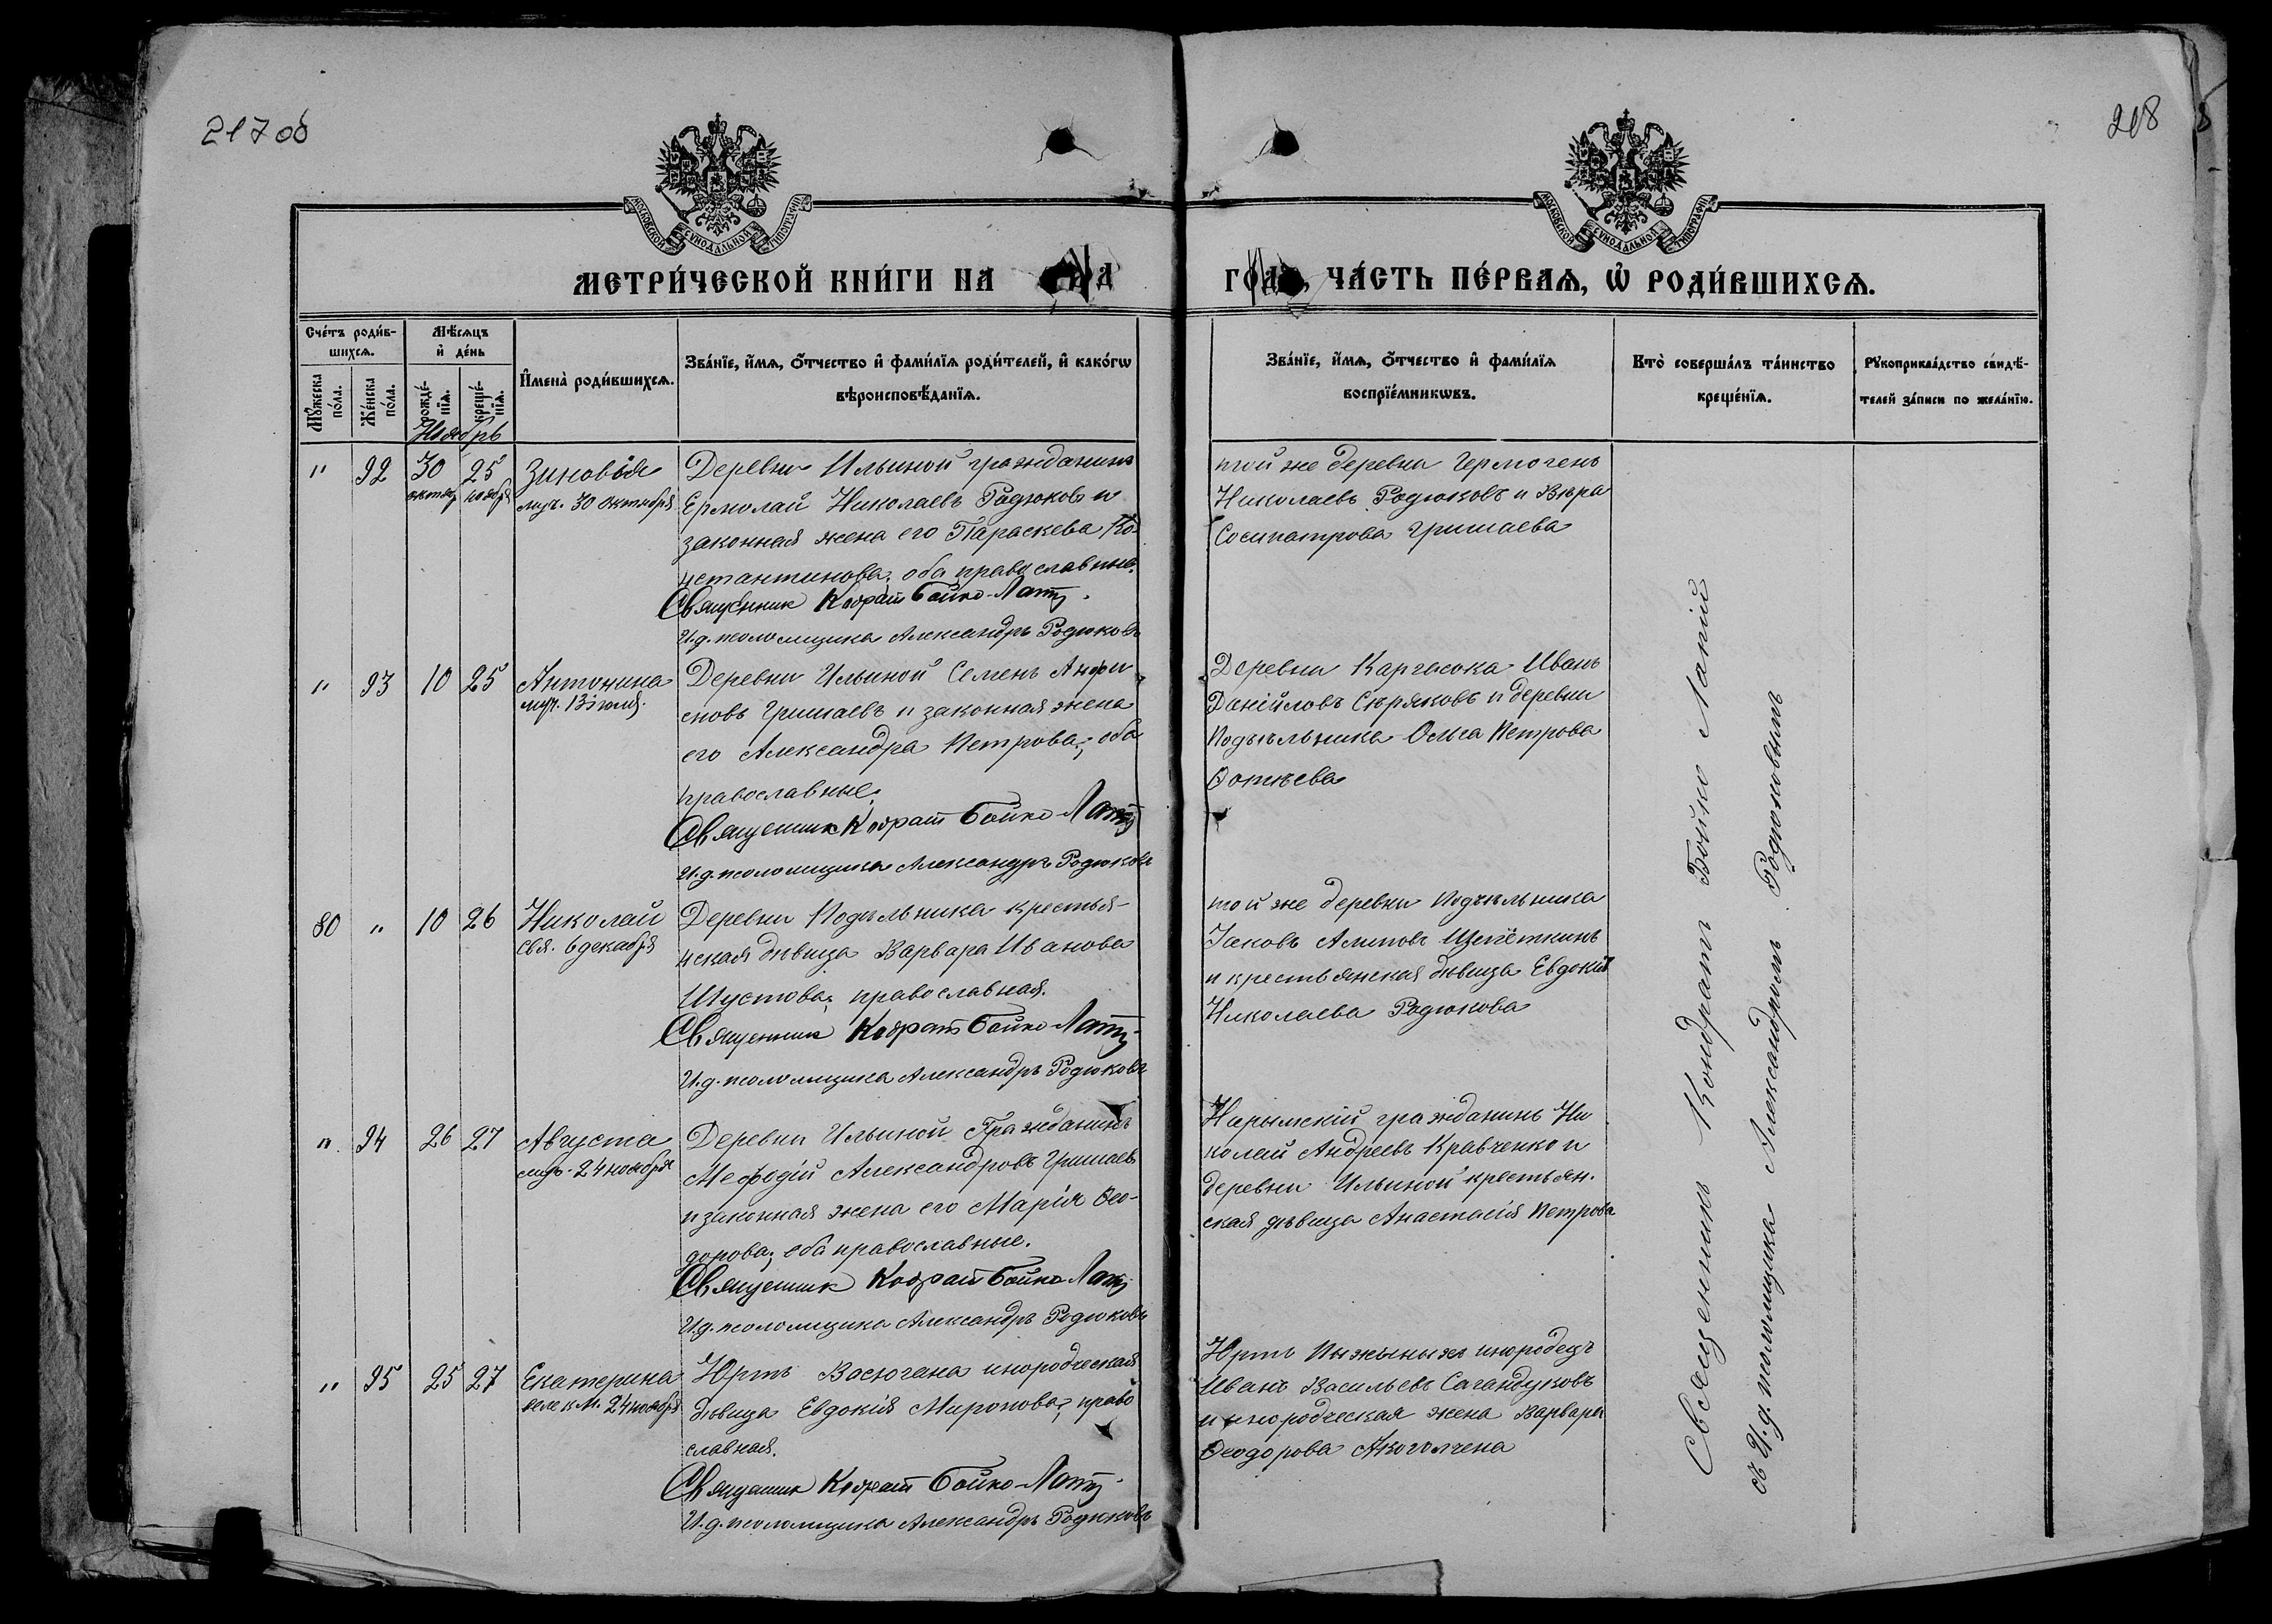 217 об
218
МОСКОВСКОЙ СѴНОДАЛЬНОЙ ТИПОГРАФІИ
МОСКОВСКОЙ СѴНОДАЛЬНОЙ ТИПОГРАФІИ
МЕТРИ́ЧЕСКОЙ КНИ́ГИ НА
ГОДЪ, ЧА́СТЬ ПЕ́РВАѦ, Ѡ҆ РОДИ́ВШИХСѦ.
Сче́тъ роди́в-
шихсѧ.
Мѣ́сѧцъ
и҆ де́нь
Мꙋ́жеска
по́ла.
Же́нска
по́ла.
рожде́-
нїѧ.
креще́-
нїѧ.
И҆мена̀ роди́вшихсѧ.
Зва́нїе, и҆́мѧ, ѻ҆́тчество и҆ фами́лїѧ роди́телей, и҆ како́гѡ
вѣроисповѣ́данїѧ.
Зва́нїе, и҆́мѧ, ѻ҆́тчество и҆ фами́лїѧ
воспрїе́мникѡвъ.
Кто̀ соверша́лъ та́инство
креще́нїѧ.
Рꙋкоприкла́дство свидѣ́-
телей за́писи по жела́нїю.
Ноябрь
" 92 30 октяб 25 ноября
Зиновія
муч. 30 октября
Деревни Ильиной гражданинъ
Ермолай Николаевъ Родюковъ и
законная жена его Параскева Ко-
нстантинова, оба православные.
Священник Кодрат Бойко-Латій.
И.д. псаломщика Александръ Родюковъ
той же деревни Гермогенъ
Николаевъ Родюковъ и Вѣра
Сосипатрова Гришаева
" 93 10 25
Антонина
муч. 13 іюня.
Деревни Ильиной Семенъ Анфи-
еновъ Гришаевъ и законная жена
его Александра Петрова, оба
православные.
Священник Кодрат Бойко-Латій
И.д. псаломщика Александръ Родюковъ
Деревни Каргасока Иванъ
Даніиловъ Сѣряковъ и деревни
Подъѣльника Ольга Петрова
Ѳотѣева
80 " 10 26
Николай
свя. 6 декабря
Деревни Подъѣльника крестья-
нская дѣвица Варвара Иванова
Шустова, православная.
Священник Кодрат Бойко-Латій
И.д. псаломщика Александръ Родюковъ
той же деревни Подъѣльника
Іаковъ Алиповъ Щепёткинъ
и крестьянская дѣвица Евдокія
Николаева Родюкова
". 94 26 27
Августа
муч. 24 ноября
Деревни Ильиной Гражданинъ
Меѳодій Александровъ Гришаевъ
и законная жена его Марія Ѳео-
дорова, оба православные.
Священник Кодрат Бойко-Латій
И.д. псаломщика Александръ Родюковъ
Нарымскій гражданинъ Ни
колай Андреевъ Кравченко и
деревни Ильиной крестьян-
ская дѣвица Анастасія Петрова
" 95 25 27
Екатерина
велик М. 24 ноября
Юртъ Васюгана инородческая
дѣвица Евдокія Миронова, право
славная.
Священник Кодрат Бойко-Латій
И.д. псаломщика Александръ Родюковъ
Юртъ Пыжиныхъ инородецъ
Иванъ Васильевъ Сагандуковъ
и инородческая жена Варвара
Ѳеодорова
Священникъ Кондратъ Бойко Латій
съ И.д. псаломщика Александромъ Родюковымъ